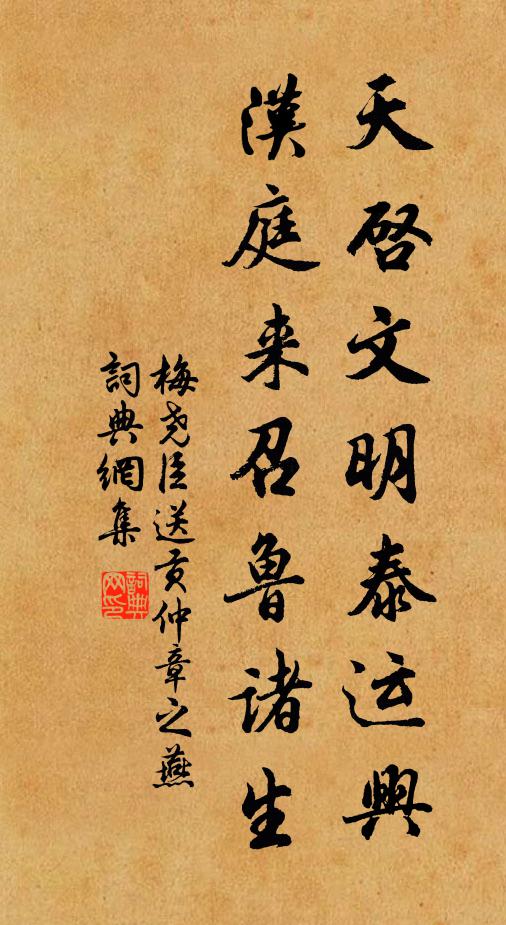 天启文明泰运興
漢庭来召魯諸生
梅尧臣送贡仲章之燕
詞典網集
詞典网印